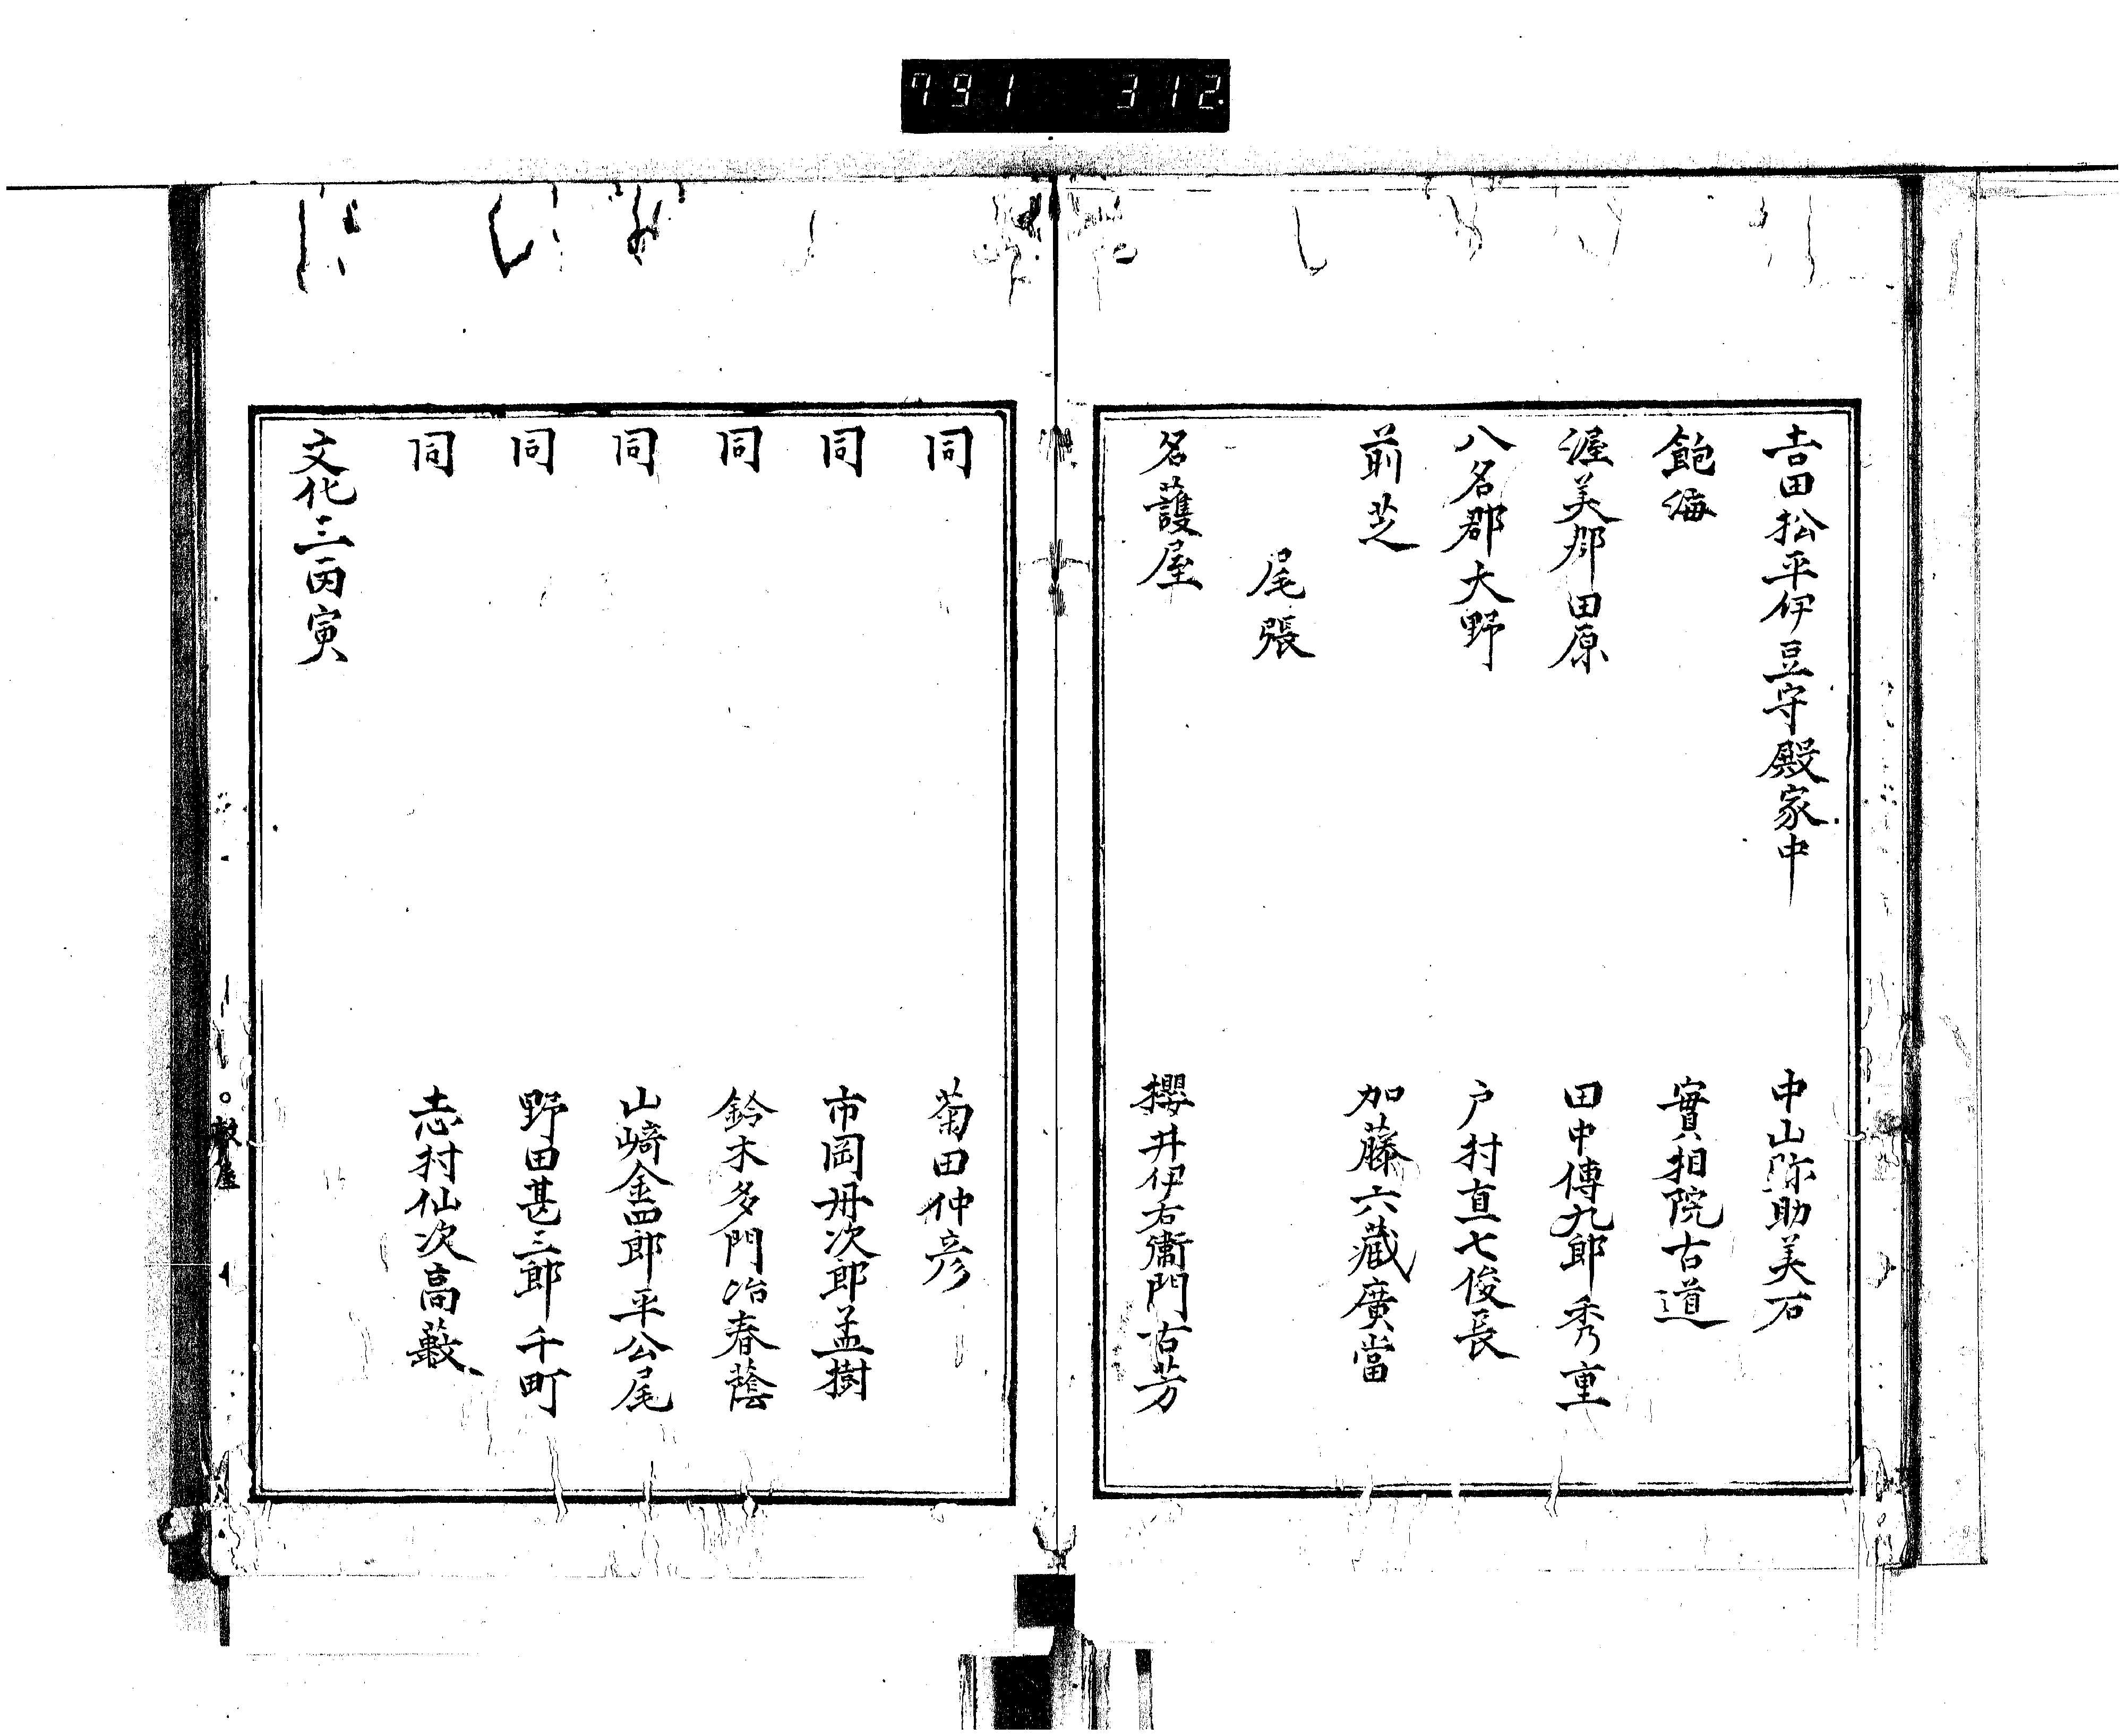 791 312
吉田松平伊豆守殿家中 中山弥助美石
飽海 實相院古道
渥美郡田原 田中傳九郎秀重
八名郡大野 戸村直七俊長
前芝 加藤六藏廣當
尾張
名護屋 櫻井伊右衛門古芳
同 菊田仲彦
同 市岡丹次郎孟樹
同 鈴木多門冶春蔭
同 山崎金四郎平公尾
同 野田甚三郎千町
同 志村仙次高藪
文化三丙寅